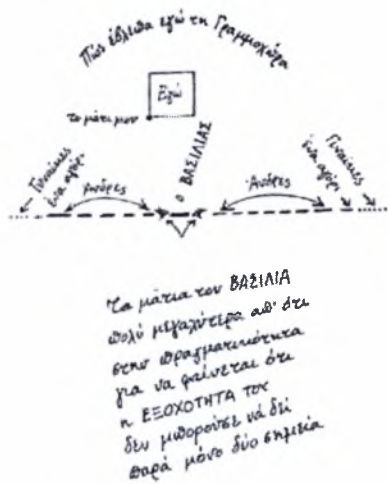 Πώς έβλεπα εγώ τη Γραμμοχώρα
Εγώ
το μάτι μου
ο ΒΑΣΙΛΙΑΣ
Γυναίκες
ένα αγόρι
Άνδρες
Άνδρες
Γυναίκες
ένα αγόρι
Τα μάτια του ΒΑΣΙΛΙΑ
πολύ μεγαλύτερα απ' ότι
στην πραγματικότητα
για να φαίνεται ότι
η ΕΞΟΧΟΤΗΤΑ του
δεν μπορούσε νά δεί
παρά μόνο δύο σημεία